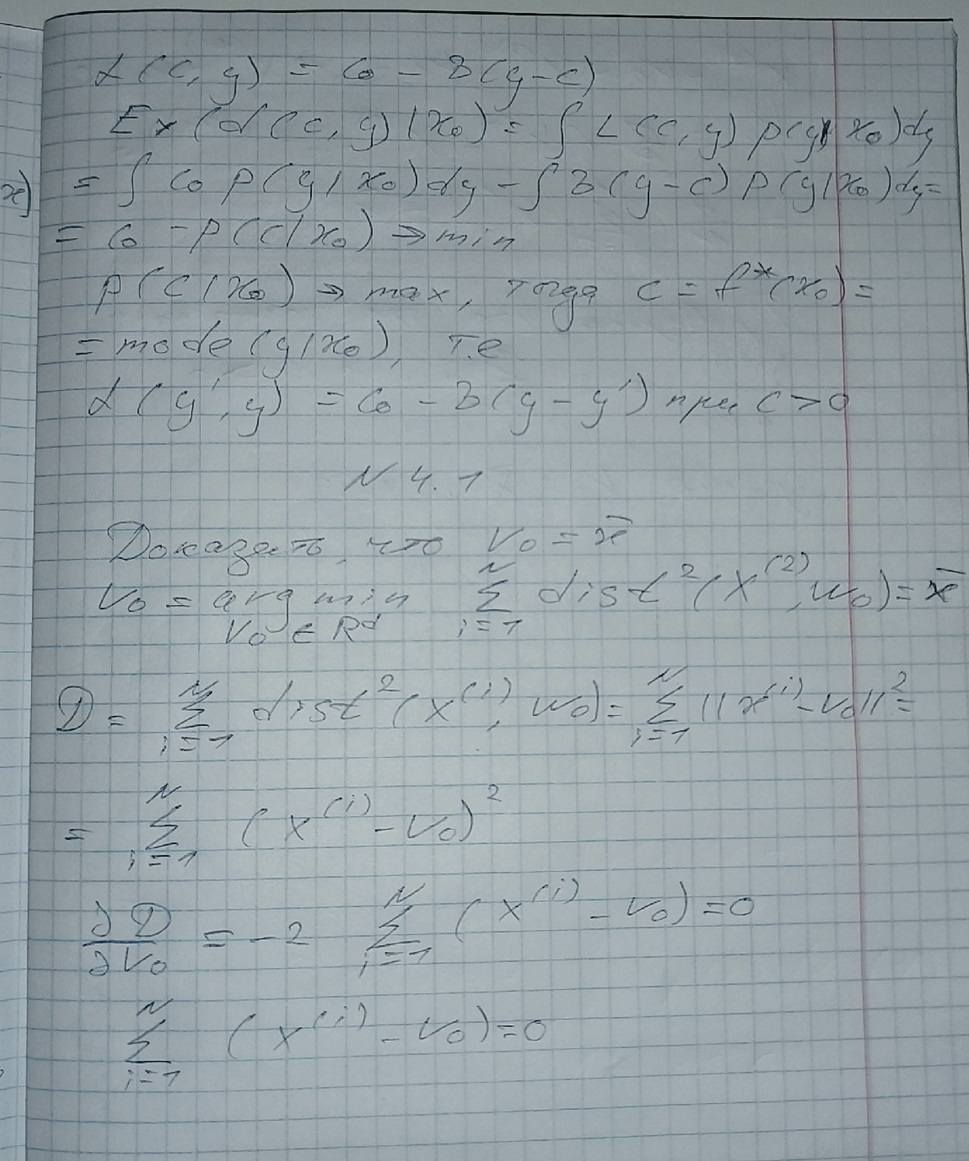 L(c, y) = c₀ - δ(y-c)
Eₓ(L(c, y)|x₀) = ∫ L(c, y) p(y|x₀)dy
= ∫ c₀ p(y|x₀)dy - ∫ δ(y-c) p(y|x₀)dy =
x)
= c₀ - p(c|x₀) → min
p(c|x₀) → max, тогда c = f*(x₀) =
= mode(y|x₀), т.е
L(y', y) = c₀ - δ(y-y') при c > 0
N 4.1
Доказать, что V₀ = x̄
V₀ = arg min_{V₀ ∈ Rᵈ} Σ_{i=1}^{N} dist²(x⁽²⁾, w₀) = x̄
D = Σ_{i=1}^{N} dist²(x⁽ⁱ⁾, w₀) = Σ_{i=1}^{N} ||x⁽ⁱ⁾ - V₀||² =
= Σ_{i=1}^{N} (x⁽ⁱ⁾ - V₀)²
∂D/∂V₀ = -2 Σ_{i=1}^{N} (x⁽ⁱ⁾ - V₀) = 0
Σ_{i=1}^{N} (x⁽ⁱ⁾ - V₀) = 0